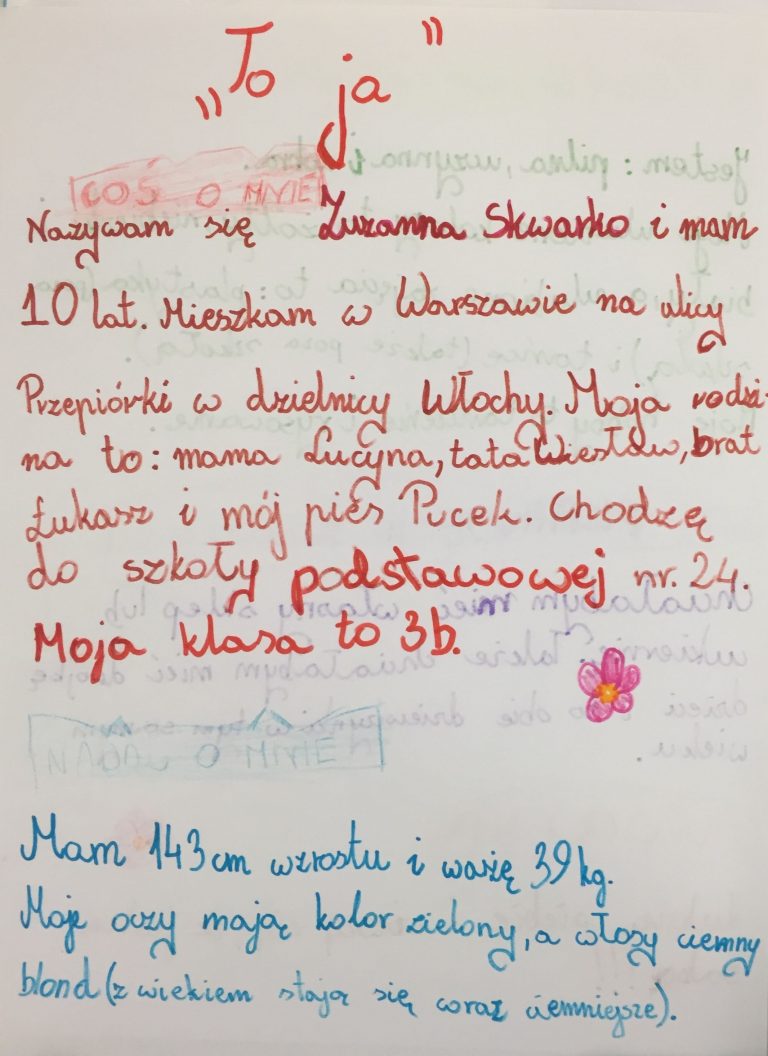 „To ja”
COŚ O MNIE
Nazywam się Zuzanna Skwarko i mam
10 lat. Mieszkam w Warszawie na ulicy
Przepiórki w dzielnicy Włochy. Moja rodzi-
na to: mama Lucyna, tata Wiesław, brat
Łukasz i mój pies Pucek. Chodzę
do szkoły podstawowej nr. 24.
Moja klasa to 3b.
O MNIE
Mam 143 cm wzrostu i ważę 39 kg.
Moje oczy mają kolor zielony, a włosy ciemny
blond (z wiekiem stają się coraz ciemniejsze).